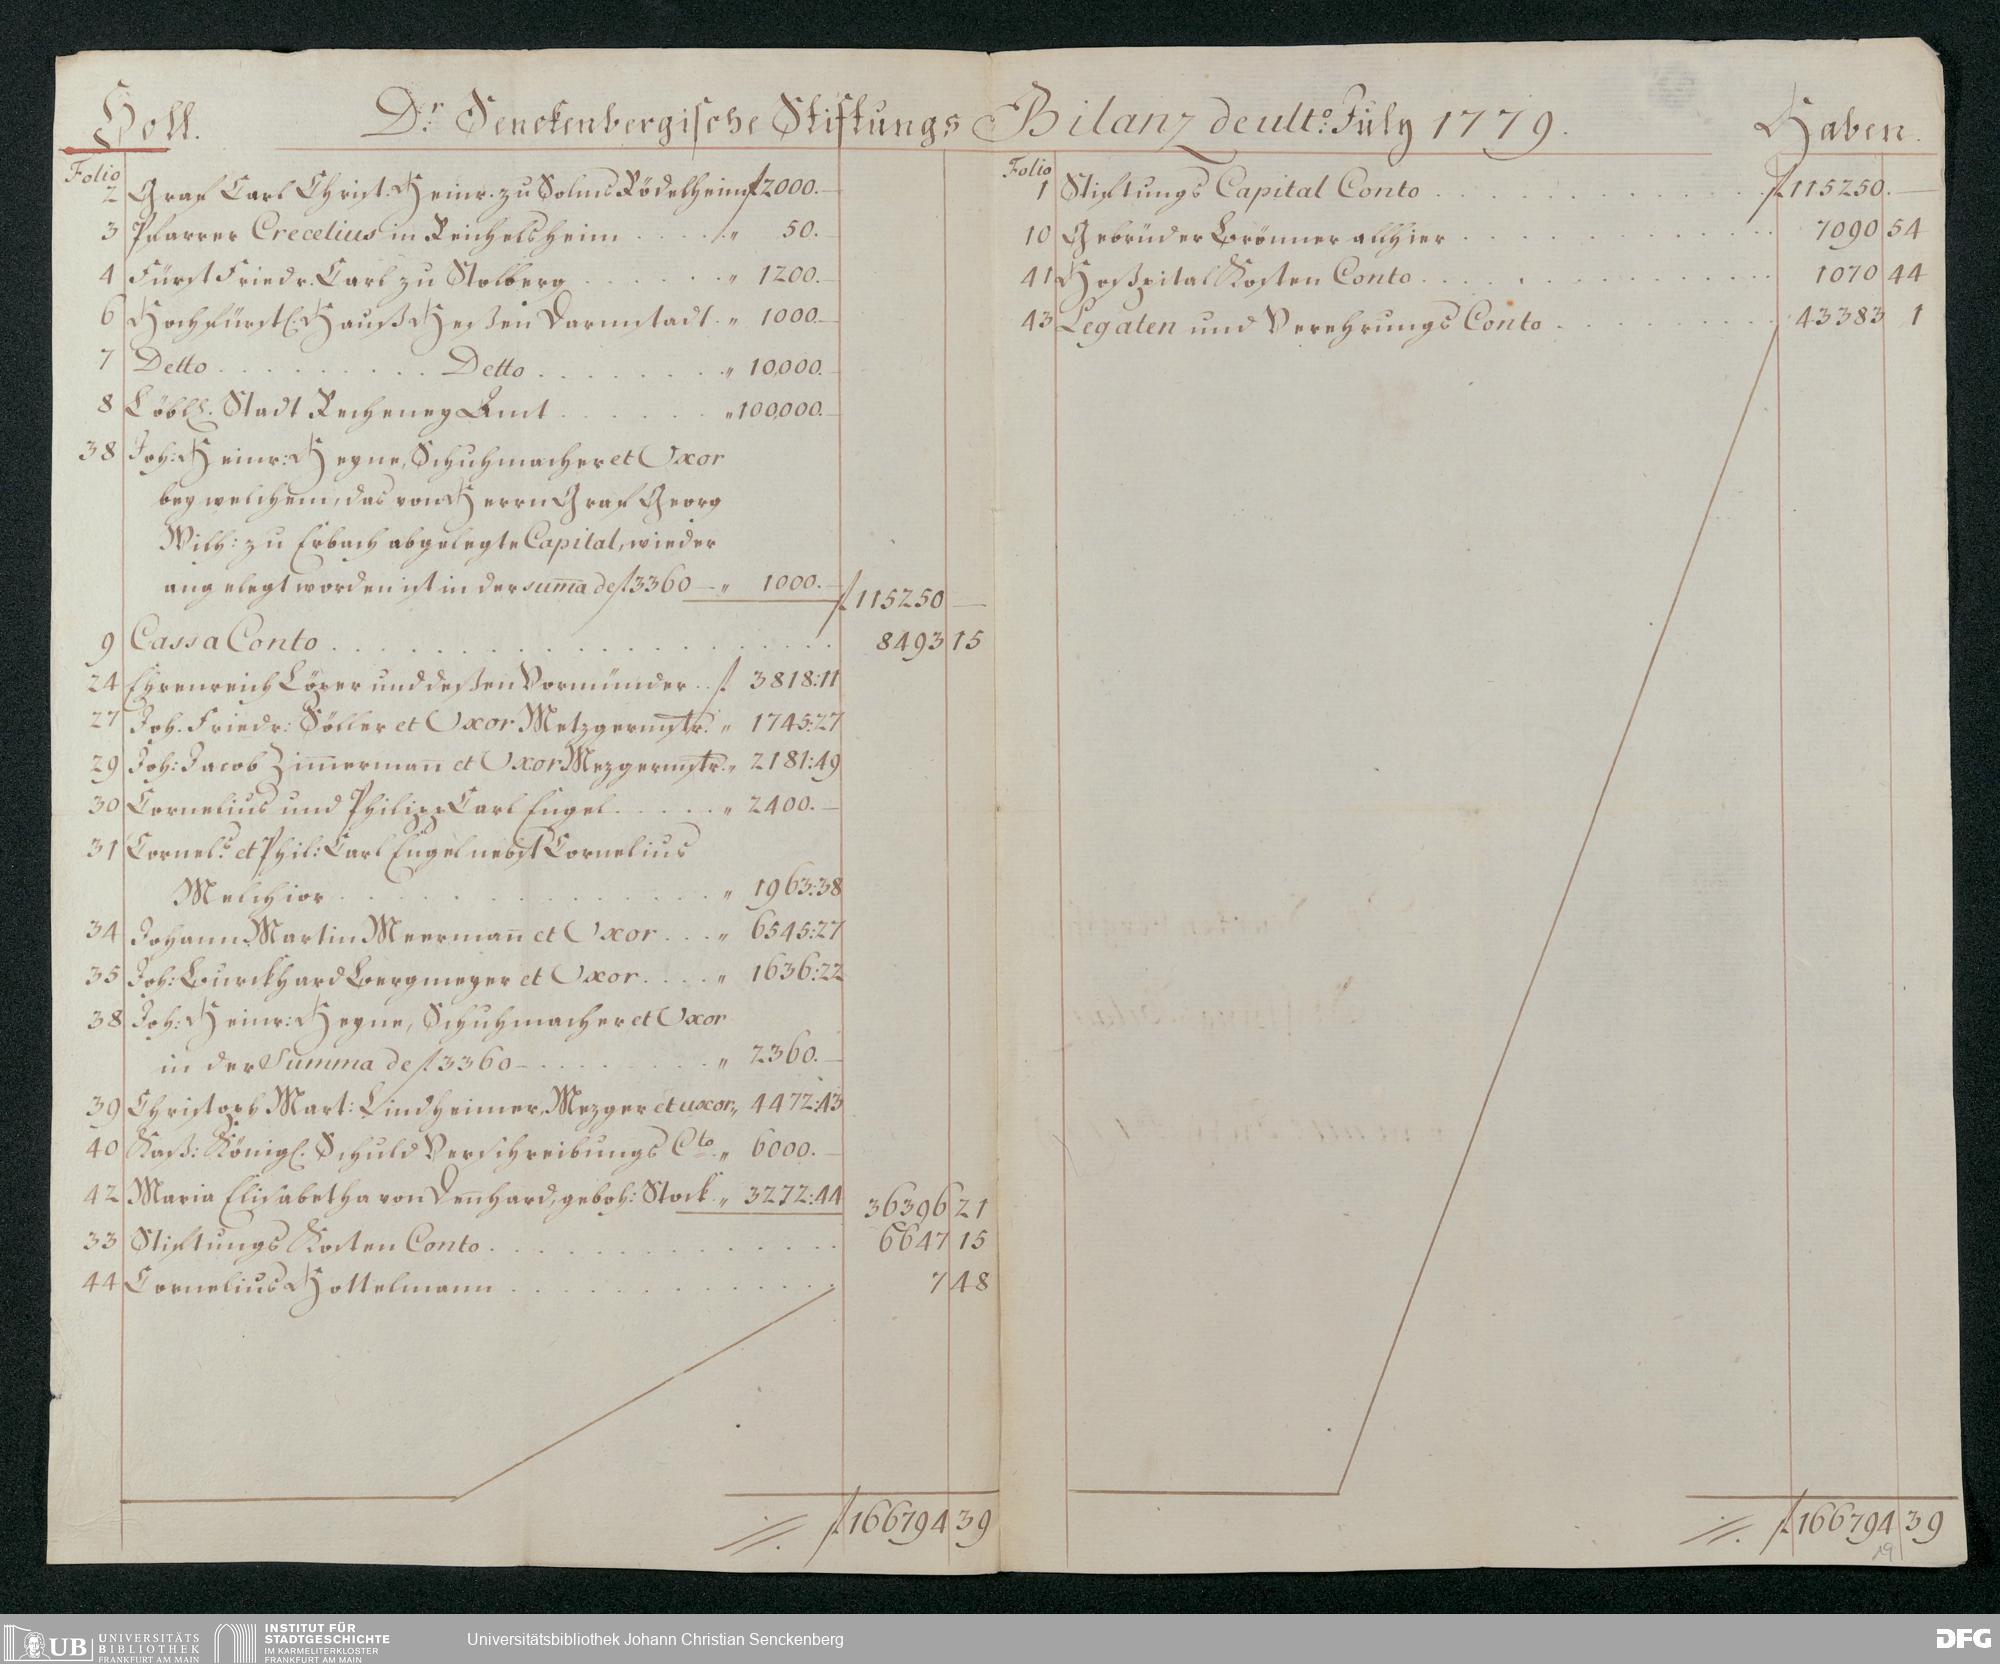 Soll.
Dr. Senckenbergische Stiftungs Bilanz de ulto. July 1779.
Haben.
Folio
2 Graf Carl Christ. Heinr. zu Solms Rödelheim f 2000.—
3 Pfarrer Crecelius in Reichelsheim . . . . . " 50.—
4 Fürst Friedr. Carl zu Stolberg . . . . . . " 1200.—
6 Hochfürstl. Hauß Heßen Darmstadt . " 1000.—
7 Detto . . . . . . . . . Detto . . . . . . . . " 10,000.—
8 Löbl. Stadt Recheney Amt . . . . . . . " 100,000.—
38 Joh: Heinr: Heyne, Schuhmacher et Uxor
bey welchem, das von Herrn Graf Georg
Wilh: zu Erbach abgelegte Capital, wieder
angelegt worden ist in der suma de f 3360 — " 1000.—
f 115250 —
9 Cassa Conto . . . . . . . . . . . . . . . . . . . . 8493 15
24 Ehrenreich Löper und deßen Vormünder . . f. 3818:11
27 Joh. Friedr: Söller et Uxor Metzgermstr. " 1745:27
29 Joh: Jacob Zim̅erman̅ et Uxor Mezgermstr. " 2181:49
30 Cornelius und Philipp Carl Engel . . . . . " 2400.—
31 Cornels. et Phil: Carl Engel nebst Cornelius
Melchior . . . . . . . . . . . . . . . " 1963:38
34 Johann Martin Meerman̅ et Uxor . . . " 6545:27
35 Joh: Burckhard Bergmeyer et Uxor . . . . " 1636:22
38 Joh: Heinr: Heyne, Schuhmacher et Uxor
in der Summa de f 3360 — . . . . . . . . " 2360.—
39 Christoph Mart: Lindheimer, Mezger et uxor " 4472:43
40 Kayß: Königl. Schuld Verschreibungs Cto. " 6000.—
42 Maria Elisabetha von Den̅hard, geboh: Stock " 3272:44
36396 21
33 Stiftungs Kosten Conto . . . . . . . . . . . . . . 6647 15
44 Cornelius Hottelmann . . . . . . . . . . . . . 7 48
f 166794 39
Folio
1 Stiftungs Capital Conto . . . . . . . . . . . . f 115250. —
10 Gebrüder Brönner allhier . . . . . . . . . . . . 7090 54
41 Hoßpital Kosten Conto . . . . . . . . . . . . . 1070 44
43 Legaten und Verehrungs Conto . . . . . . . . . 43383 1
f 166794 39
19
UB UNIVERSITÄTS
BIBLIOTHEK
FRANKFURT AM MAIN
INSTITUT FÜR
STADTGESCHICHTE
IM KARMELITERKLOSTER
FRANKFURT AM MAIN
Universitätsbibliothek Johann Christian Senckenberg
DFG